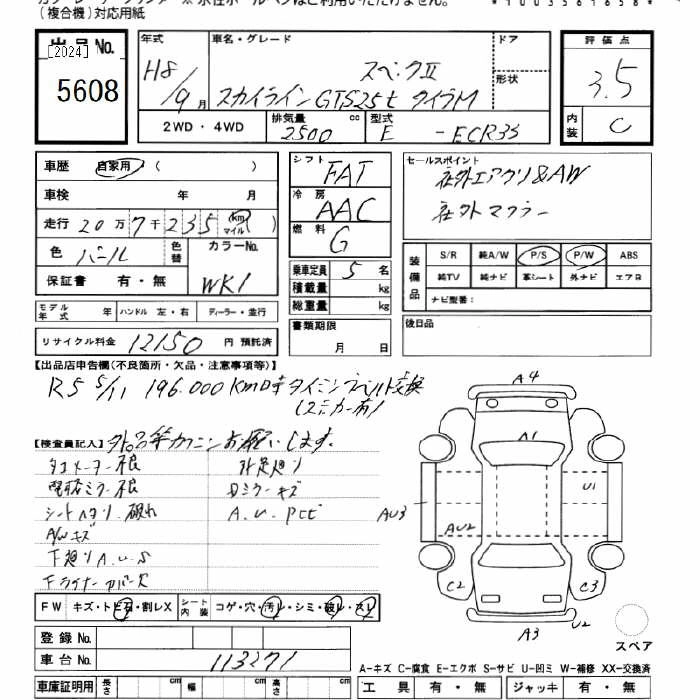 (複合機)対応用紙
*1003561658*
出品No.
[2024]
5608
年式
H8/9月
車名・グレード
スペックII
スカイライン GTS25t タイプM
ドア
形状
2WD・4WD
排気量 2500 cc
型式 E - ECR33
評価点
3.5
内装 C
車歴 自家用 ( )
車検 年 月
走行 20万7千235 (km マイル)
色 パール 色替
カラーNo. WK1
保証書 有・無
シフト FAT
冷房 AAC
燃料 G
乗車定員 5 名
積載量 kg
総重量 kg
セールスポイント
社外エアクリ&AW
社外マフラー
装備品
S/R 純A/W P/S P/W ABS
純TV 純ナビ 革シート 外ナビ エアB
ナビ型番:
モデル年式 年 ハンドル 左・右 ディーラー・並行
リサイクル料金 12150 円 預託済
書類期限 月 日
後日品
【出品店申告欄(不良箇所・欠品・注意事項等)】
R5 5/11 196.000Km時 タイミングベルト交換
(ステッカー有)
【検査員記入】
外品等カクニンお願いします。
シートヘタリ.破れ
Dミラーキズ
A.U.PCE
A/Wキズ
下廻りA.U.S
A4
A1
U1
AU3
AU2
C2
C3
A3
U2
スペア
FW キズ・トビ石・割レX
シート内装 コゲ・穴・汚レ・シミ・破レ・スレ
登録No.
車台No. 113271
A-キズ C-腐食 E-エクボ S-サビ U-凹ミ W-補修 XX-交換済
車庫証明用 長さ cm 幅 cm 高さ cm
工具 有・無 ジャッキ 有・無